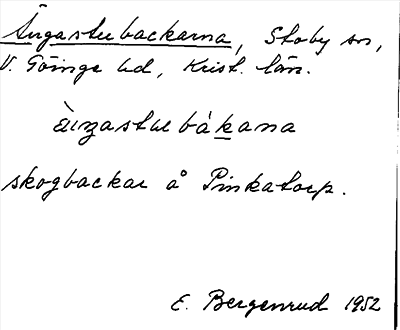 Ängastubackarna, Stoby sn,
V. Göinge hd, Krist. län.
skogbackar å Pinkatorp.
E. Bergenrud 1952